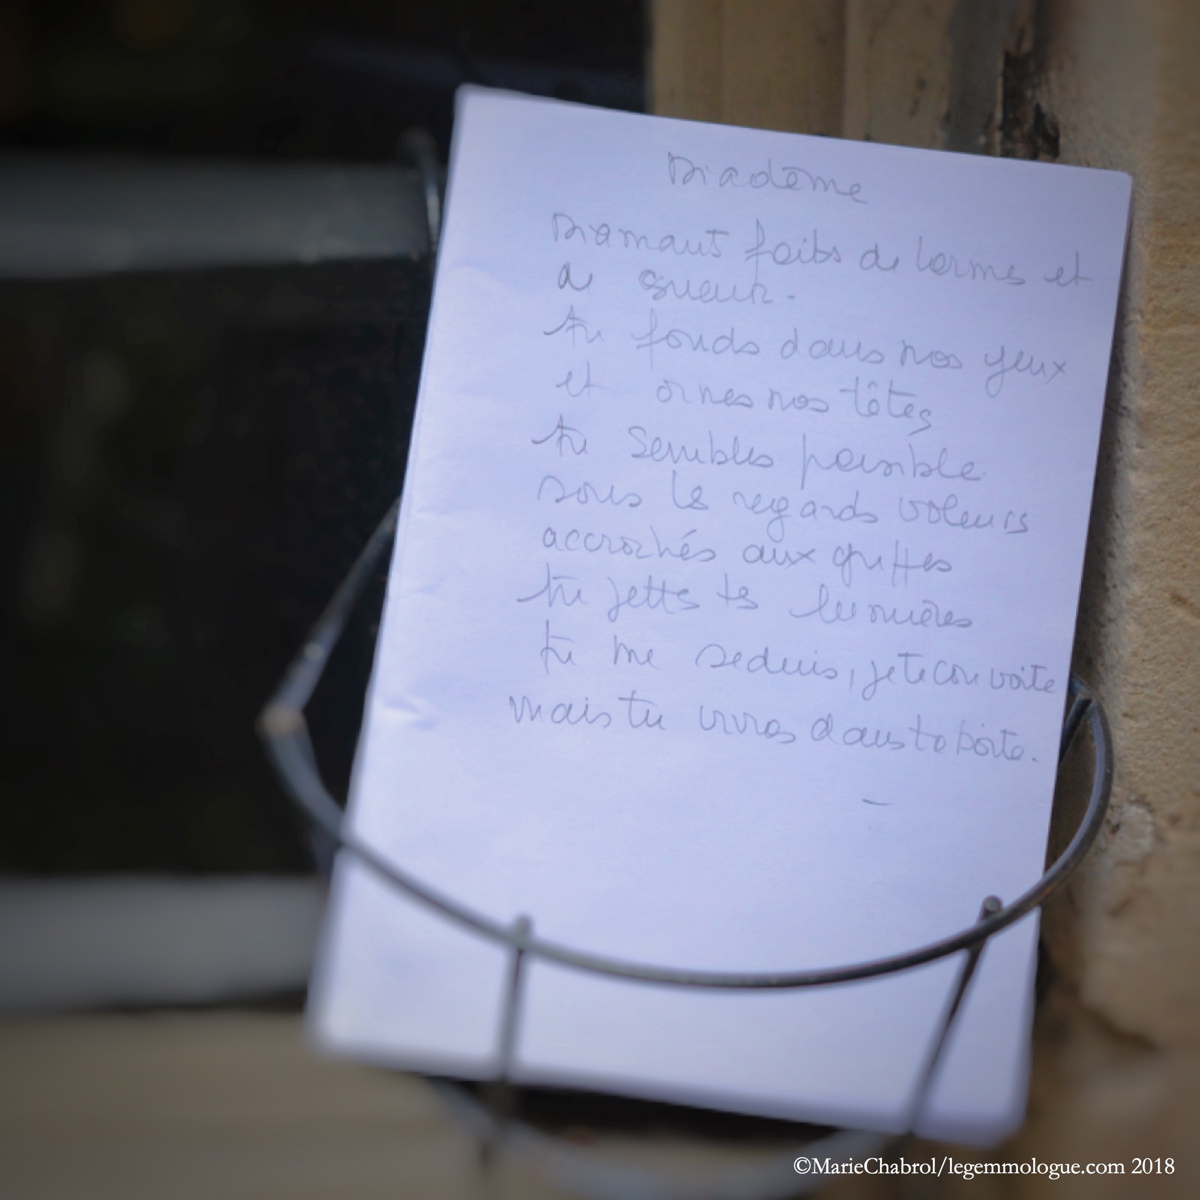 Diadème
Diamants faits de larmes et
de sueur.
tu fonds dans nos yeux
et ornes nos têtes
tu sembles paisible
sous les regards voleurs
accrochés aux griffes
tu jettes tes lumières
tu me seduis, je te convoite
mais tu vivras dans ta boite.
©MarieChabrol/legemmologue.com 2018